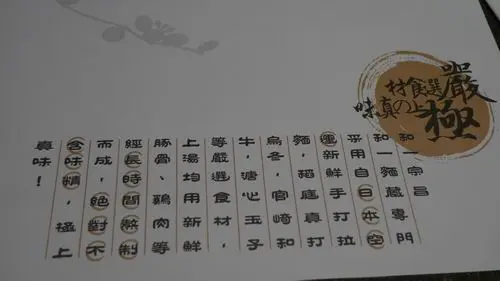 嚴選食材
極上の真味
和一宗昌
和一麵藏專門
采用自日本空
運新鮮手打拉
麵，稻庭真打
烏冬，官崎和
牛，溏心玉子
等嚴選食材，
上湯均用新鮮
豚骨、雞肉等
經長時間熬制
而成，絕對不
含味精，極上
真味！